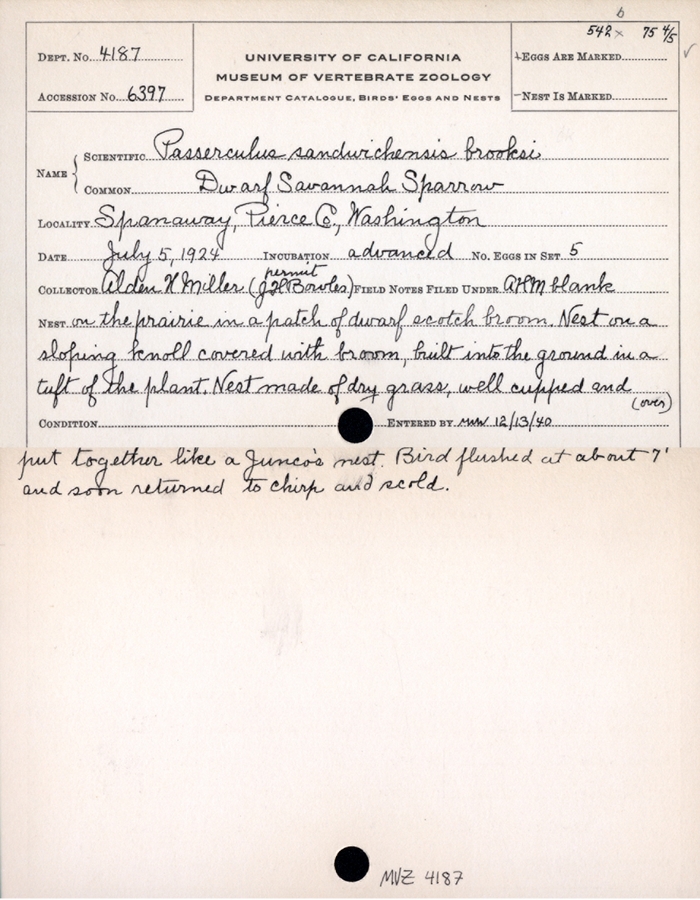 b
542x 75 4/5
DEPT. No. 4187
UNIVERSITY OF CALIFORNIA
+EGGS ARE MARKED ✓
MUSEUM OF VERTEBRATE ZOOLOGY
ACCESSION No. 6397
DEPARTMENT CATALOGUE, BIRDS' EGGS AND NESTS
-NEST IS MARKED
NAME { SCIENTIFIC Passerculus sandwichensis brooksi
COMMON Dwarf Savannah Sparrow
LOCALITY Spanaway, Pierce Co., Washington
DATE July 5, 1924 INCUBATION advanced No. EGGS IN SET 5
permit
COLLECTOR Alden H Miller (JHBowles) FIELD NOTES FILED UNDER AHM blank
NEST on the prairie in a patch of dwarf scotch broom. Nest on a
sloping knoll covered with broom, built into the ground in a
tuft of the plant. Nest made of dry grass, well cupped and
(over)
CONDITION ENTERED BY MWW 12/13/40
put together like a Junco's nest. Bird flushed at about 7'
and soon returned to chirp and scold.
MVZ 4187